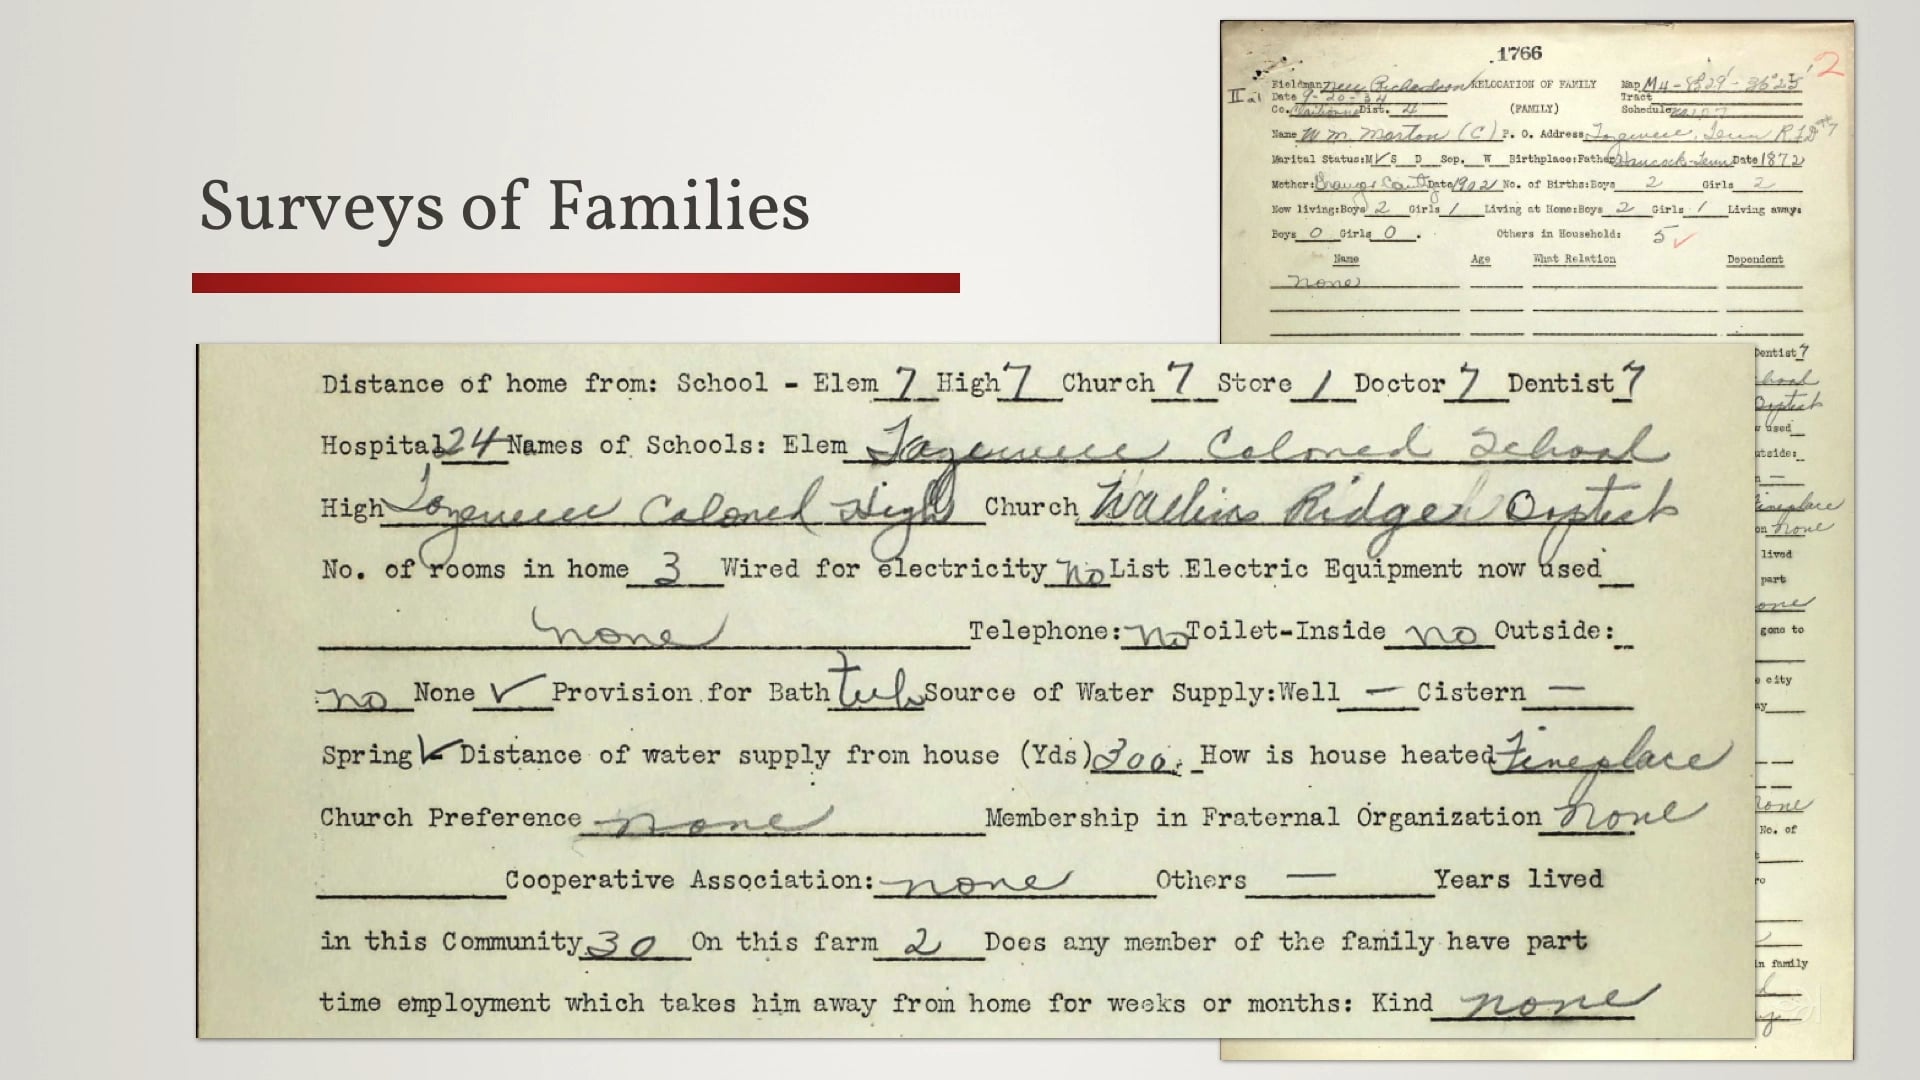 Surveys of Families
1766
2
Fieldman Richardson RELOCATION OF FAMILY Map M4-
II a1 Date 9-20-34 Tract
Co. Claiborne Dist. 4 (FAMILY) Schedule
Name W.M. Morton (C) P. O. Address Tazewell, Tenn R.F.D
Marital Status:M ✓ S D Sep. W Birthplace:Father Hancock-Tenn Date 1872
Mother: Date 1902 No. of Births:Boys 2 Girls 2
Now living:Boys 2 Girls 1 Living at Home:Boys 2 Girls 1 Living away:
Boys 0 Girls 0. Others in Household: 5 ✓
Name Age What Relation Dependent
none
Distance of home from: School - Elem 7 High 7 Church 7 Store 1 Doctor 7 Dentist 7
Hospital 24 Names of Schools: Elem Tazewell Colored School
High Tazewell Colored High Church Wallins Ridge Baptist
No. of rooms in home 3 Wired for electricity no List Electric Equipment now used
none Telephone: no Toilet-Inside no Outside:
no None ✓ Provision for Bath tub Source of Water Supply:Well — Cistern —
Spring ✓ Distance of water supply from house (Yds) 300. How is house heated Fireplace
Church Preference none Membership in Fraternal Organization none
Cooperative Association: none Others — Years lived
in this Community 30 On this farm 2 Does any member of the family have part
time employment which takes him away from home for weeks or months: Kind none
Dentist 7
used
utside:
Fireplace
on none
lived
part
gone to
e city
No. of
in family